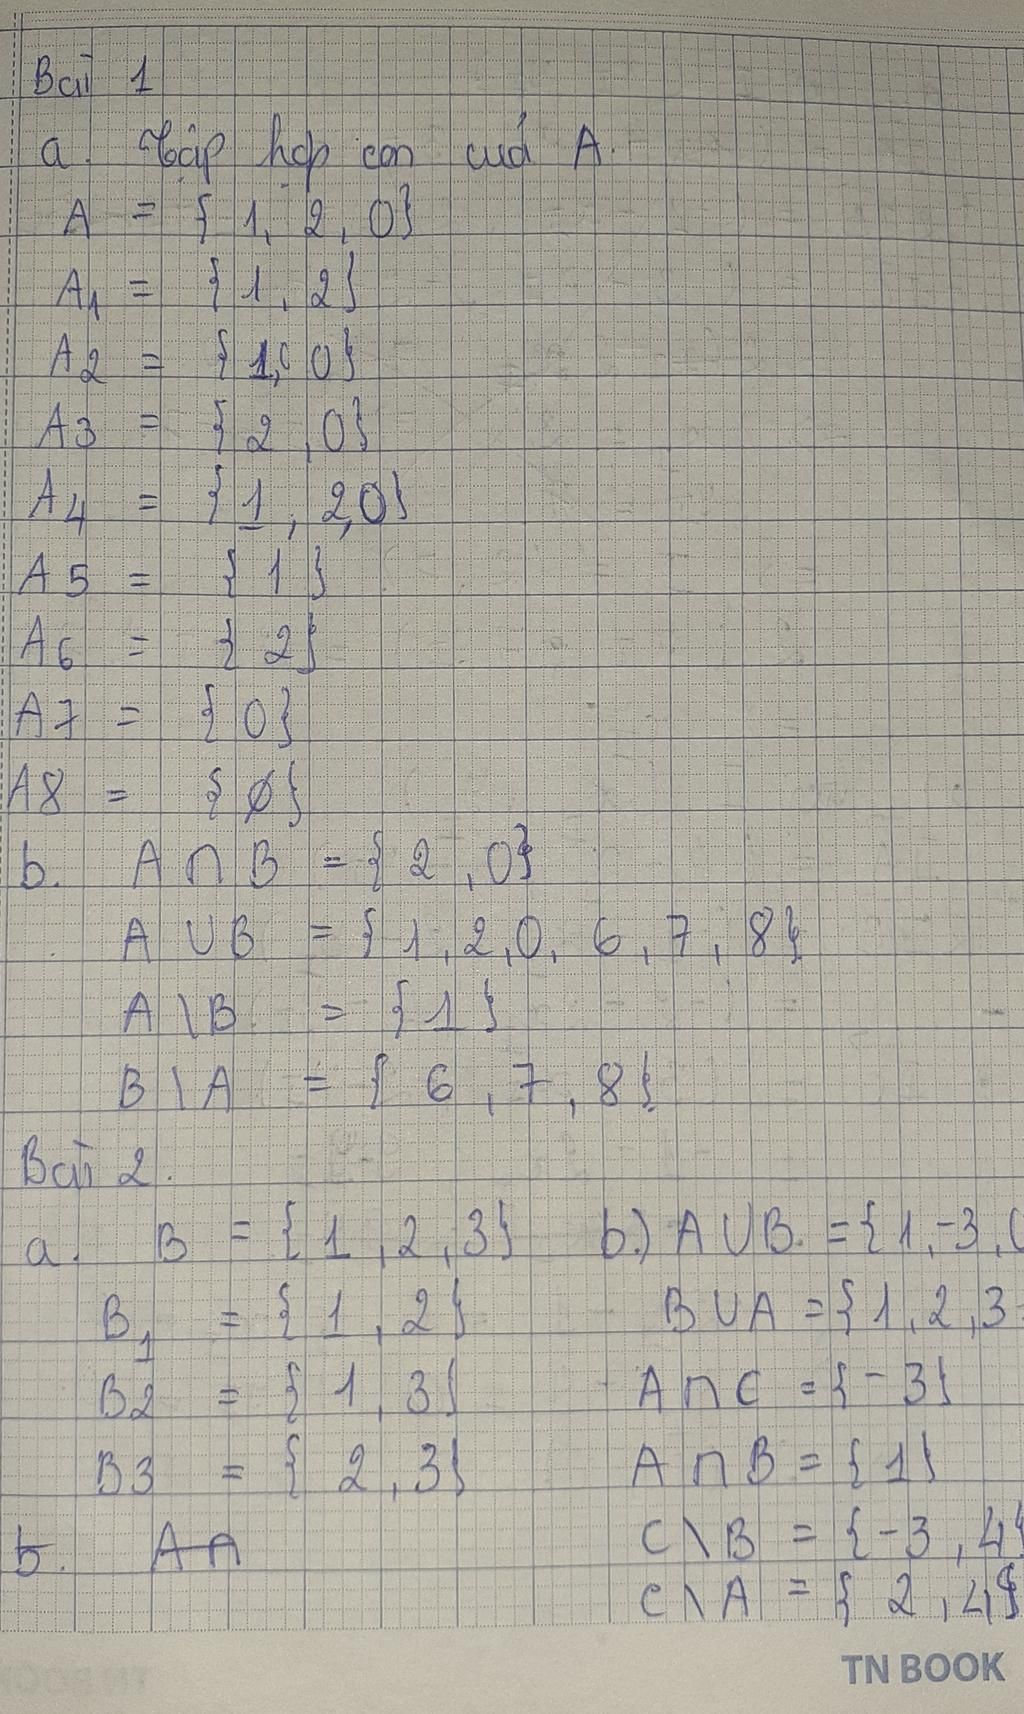 Bài 1
a. Tập hợp con của A.
A = { 1, 2, 0}
A1 = { 1, 2}
A2 = { 1, 0}
A3 = { 2, 0}
A4 = { 1, 2, 0}
A5 = { 1 }
A6 = { 2}
A7 = { 0}
A8 = { ∅}
b. A ∩ B = { 2, 0}
A ∪ B = { 1, 2, 0, 6, 7, 8}
A \ B = { 1 }
B \ A = { 6, 7, 8}
Bài 2.
a. B = { 1, 2, 3}
B1 = { 1, 2}
B2 = { 1, 3}
B3 = { 2, 3}
b. A ∩
b.) A ∪ B = { 1, -3,
B ∪ A = { 1, 2, 3
A ∩ C = { -3}
A ∩ B = { 1}
C \ B = { -3, 4}
C \ A = { 2, 4}
TN BOOK